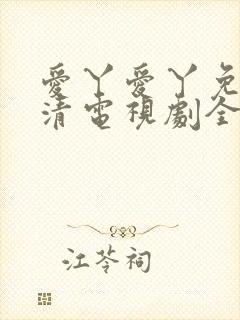 愛丫愛丫免
清電視劇全
江芩祠